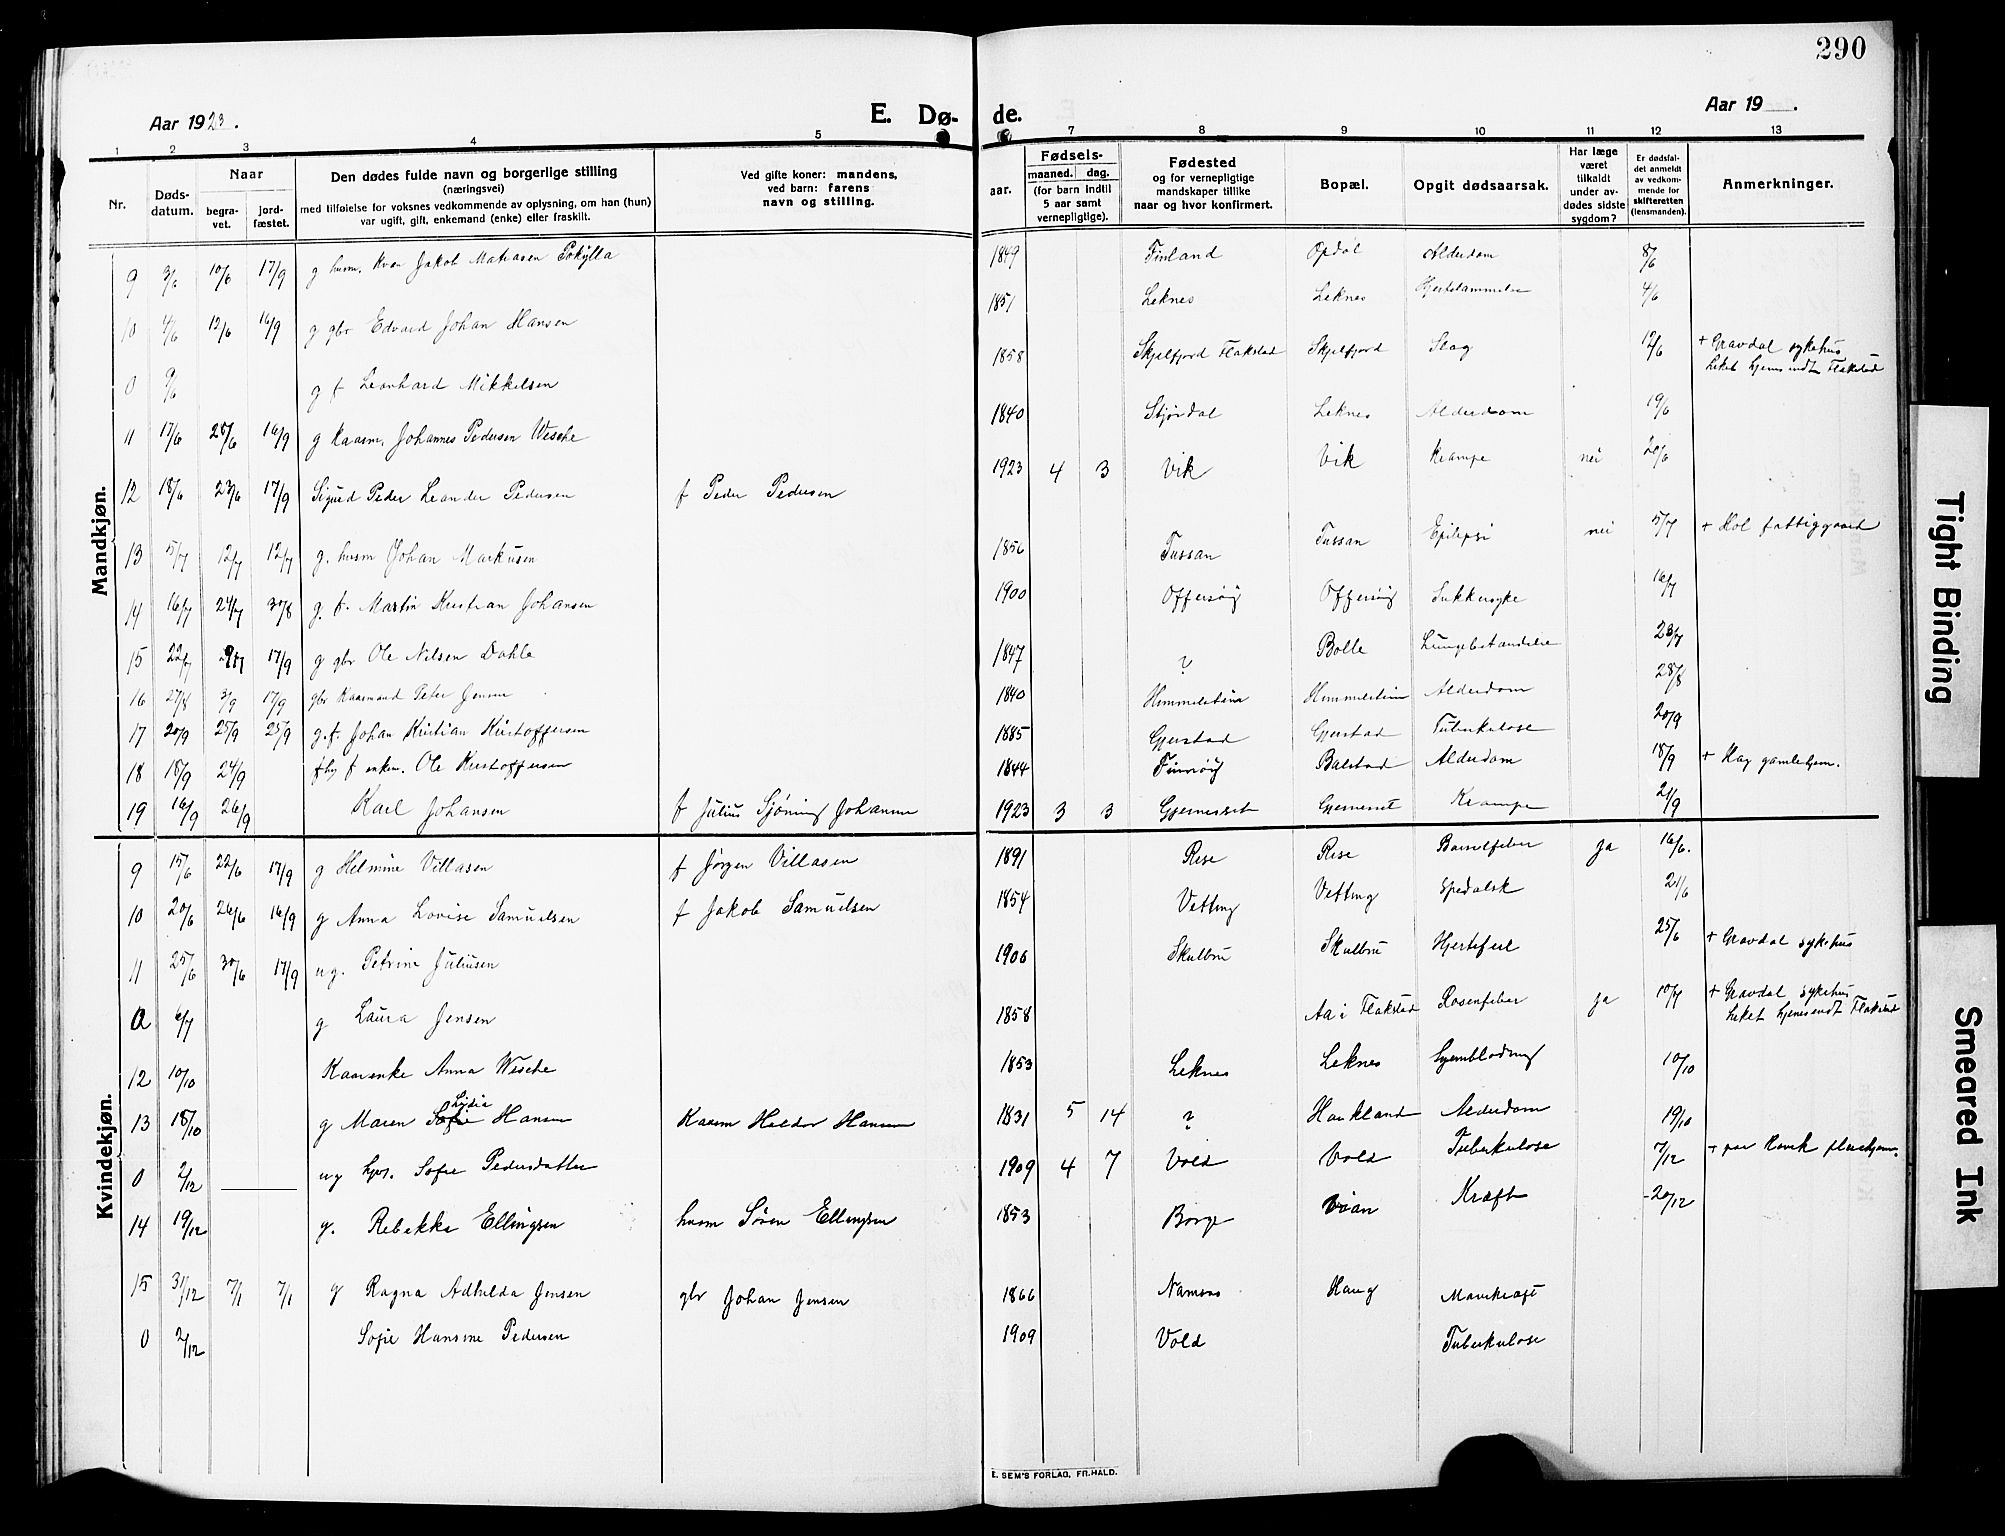 290
Aar 1923.
E. Dø-
de.
Aar 19 .
1 2 3 4 5 7 8 9 10 11 12 13
Nr.
Døds-
datum.
Naar
begra-
vet.
jord-
fæstet.
Den dødes fulde navn og borgerlige stilling
(næringsvei)
med tilføielse for voksnes vedkommende av oplysning, om han (hun)
var ugift, gift, enkemand (enke) eller fraskilt.
Ved gifte koner: mandens,
ved barn: farens
navn og stilling.
aar.
Fødsels-
maaned. dag.
(for barn indtil
5 aar samt
vernepligtige).
Fødested
og for vernepligtige
mandskaper tillike
naar og hvor konfirmert.
Bopæl.
Opgit dødsaarsak.
Har læge
været
tilkaldt
under av-
dødes sidste
sygdom?
Er dødsfal-
det anmeldt
av vedkom-
mende for
skifteretten
(lensmanden).
Anmerkninger.
Mandkjøn.
9 3/6 10/6 17/9 g husm. Kven Jakob Matiasen 1849 Finland Opdøl Alderdom 8/6
10 4/6 12/6 16/9 g gbr Edvard Johan Hansen 1851 Leknes Leknes 4/6
0 9/6 g f Leonhard Mikkelsen 1858 Skjelfjord Flakstad Skjelfjord Slag 12/6 + Gravdal sykehus
Liket hjemsendt Flakstad
11 17/6 25/6 16/9 g Kaarm. Johannes Pedersen Wesche 1840 Stjørdal Leknes Alderdom 19/6
12 18/6 23/6 17/9 Sigurd Peder Leander Pedersen f Peder Pedersen 1923 4 3 Vik Vik Krampe nei 20/6
13 5/7 12/7 12/7 g. husm Johan Markusen 1856 Tussan Tussan Epilepsi nei 5/7 + Hol fattiggaard
14 16/7 24/7 30/8 g. f. Martin Kristian Johansen 1900 Offersøy Offersøy Sukkersyke 16/7
15 22/7 17/9 g gbr Ole Nilsen Dahle 1847 ? Bolle Lungebetændelse 23/7
16 27/8 3/9 17/9 gbr Kaarmand Peter Jensen 1840 Himmelstein Himmelstein Alderdom 28/8
17 20/9 25/9 25/9 g. f. Johan Kristian Kristoffersen 1885 Gjerstad Gjerstad Tuberkulose 20/9
18 18/9 24/9 f enkem. Ole Kristoffersen 1844 Finnøy Balstad Alderdom 18/9 + Hag gamlehjem.
19 16/9 26/9 Karl Johansen f Julius Sjøning Johansen 1923 3 3 Gjermeset Gjermeset Krampe 21/9
Kvindekjøn.
9 15/6 22/6 17/9 g Helmine Villasen f Jørgen Villasen 1891 Rise Rise Barselfeber ja 16/6.
10 20/6 26/6 16/9 g Anna Lovise Samuelsen f Jakob Samuelsen 1854 Vetting Vetting Spedalsk 21/6
11 25/6 30/6 17/9 ug. Petrine Juliusen 1906 Skulbru Skulbru Hjertefeil 25/6 + Gravdal sykehus
0 6/7 g Laura Jensen 1858 Aa i Flakstad Rosenfeber ja 10/7 + Gravdal sykehus
Liket hjemsendt Flakstad
12 10/10 Kaarenke Anna Wesche 1853 Leknes Leknes Hjerneblødning 10/10
Lydia
13 18/10 g Maren Sofie Hansen Kaarm Heldor Hansen 1831 5 14 ? Haukland Alderdom 19/10
0 2/12 ug hjv. Sofie Pedersdatter 1909 4 7 Vold Vold Tuberkulose 7/12 + paa pleiehjem.
14 19/12 g. Rebekka Ellingsen husm Søren Ellingsen 1853 Borge Vian Kræft 20/12
15 31/12 7/1 7/1 g Ragna Adhilda Jensen gbr Johan Jensen 1866 Namsos Haug Mavekræft
0 2/12 Sofie Hansine Pedersen 1909 Vold Tuberkulose
E. SEM'S FORLAG, FR.HALD.
Tight Binding
Smeared Ink